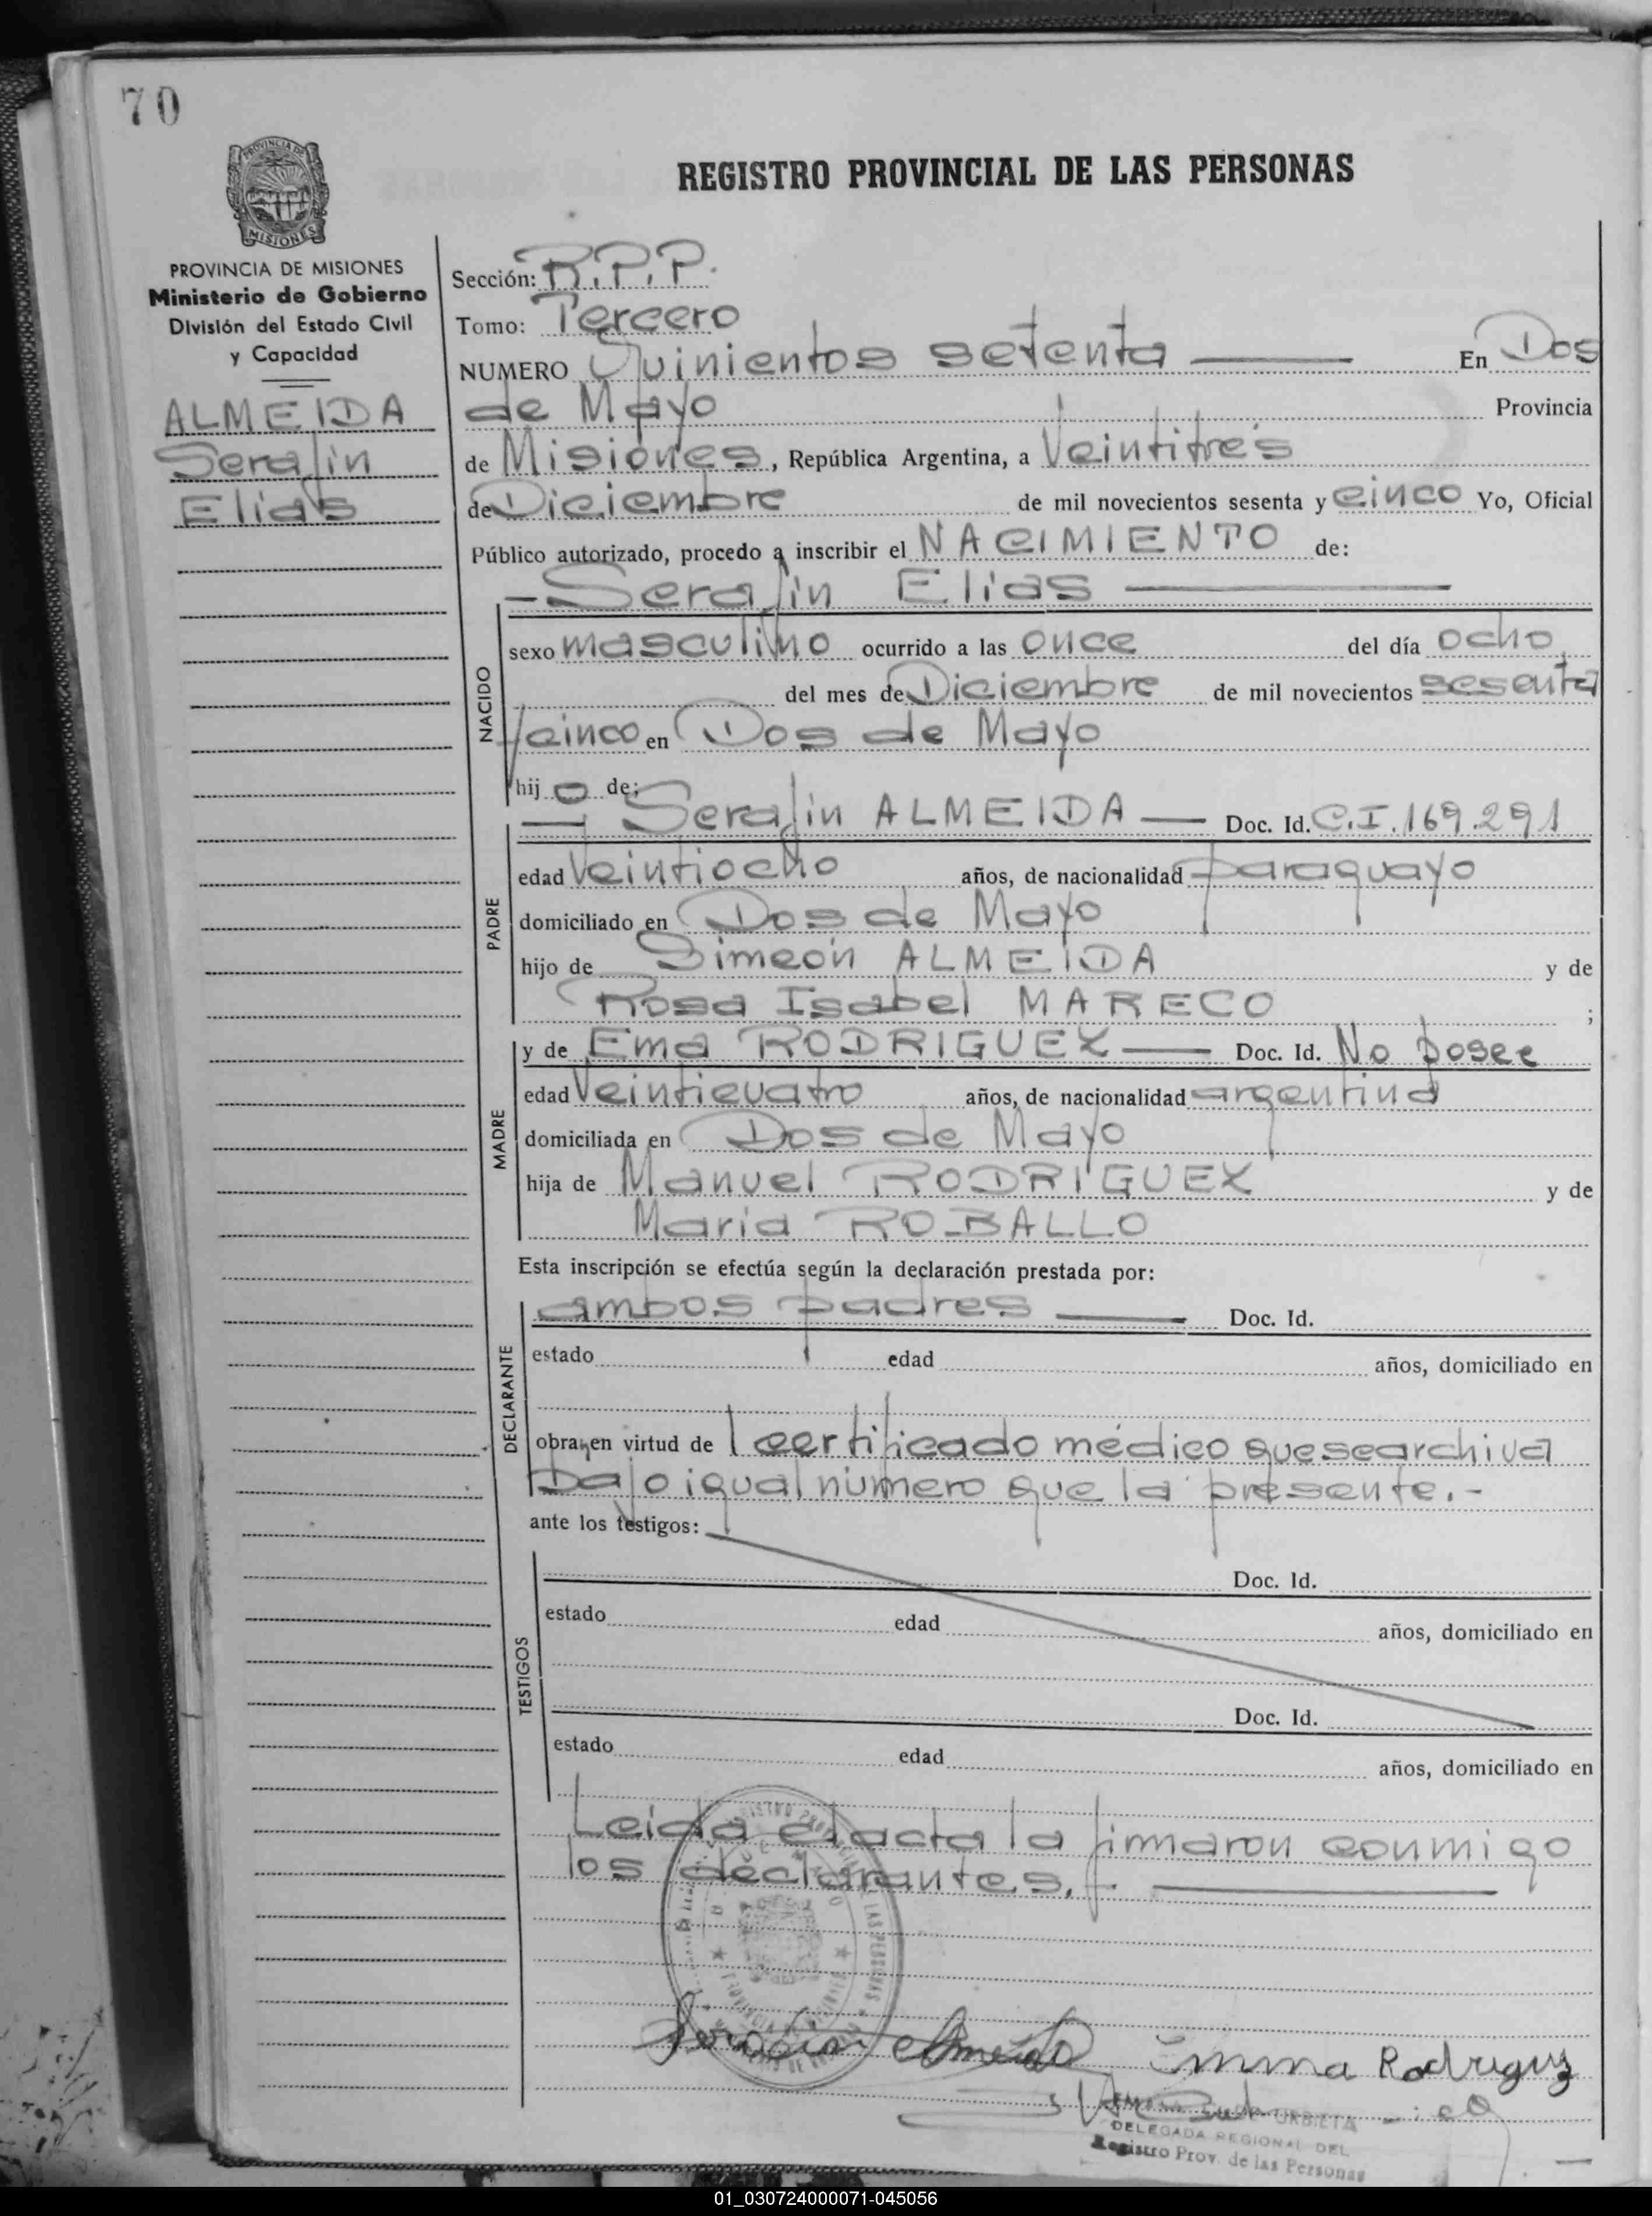 70
PROVINCIA DE
MISIONES
REGISTRO PROVINCIAL DE LAS PERSONAS
PROVINCIA DE MISIONES
Ministerio de Gobierno
División del Estado Civil
y Capacidad
ALMEIDA
Serafín
Elías
Sección: R.P.P.
Tomo: Tercero
NUMERO Quinientos setenta En Dos
de Mayo Provincia
de Misiones, República Argentina, a Veintitrés
de Diciembre de mil novecientos sesenta y cinco Yo, Oficial
Público autorizado, procedo a inscribir el NACIMIENTO de:
Serafín Elías
NACIDO
sexo masculino ocurrido a las once del día ocho
del mes de Diciembre de mil novecientos sesenta
/cinco en Dos de Mayo
hijo de:
PADRE
Serafín ALMEIDA Doc. Id. C.I. 169.291
edad Veintiocho años, de nacionalidad paraguayo
domiciliado en Dos de Mayo
hijo de Simeón ALMEIDA y de
Rosa Isabel MARECO ;
MADRE
y de Ema RODRIGUEZ Doc. Id. No posee
edad Veinticuatro años, de nacionalidad argentina
domiciliada en Dos de Mayo
hija de Manuel RODRIGUEZ y de
María ROBALLO
Esta inscripción se efectúa según la declaración prestada por:
DECLARANTE
ambos padres Doc. Id.
estado edad años, domiciliado en
obra en virtud de certificado médico que se archiva
bajo igual número que la presente.-
ante los testigos:
TESTIGOS
Doc. Id.
estado edad años, domiciliado en
Doc. Id.
estado edad años, domiciliado en
Leída el acta la firmaron conmigo
los declarantes.
Serafín Almeida Emma Rodriguez
URBIETA
DELEGADA REGIONAL DEL
Registro Prov. de las Personas
01_030724000071-045056